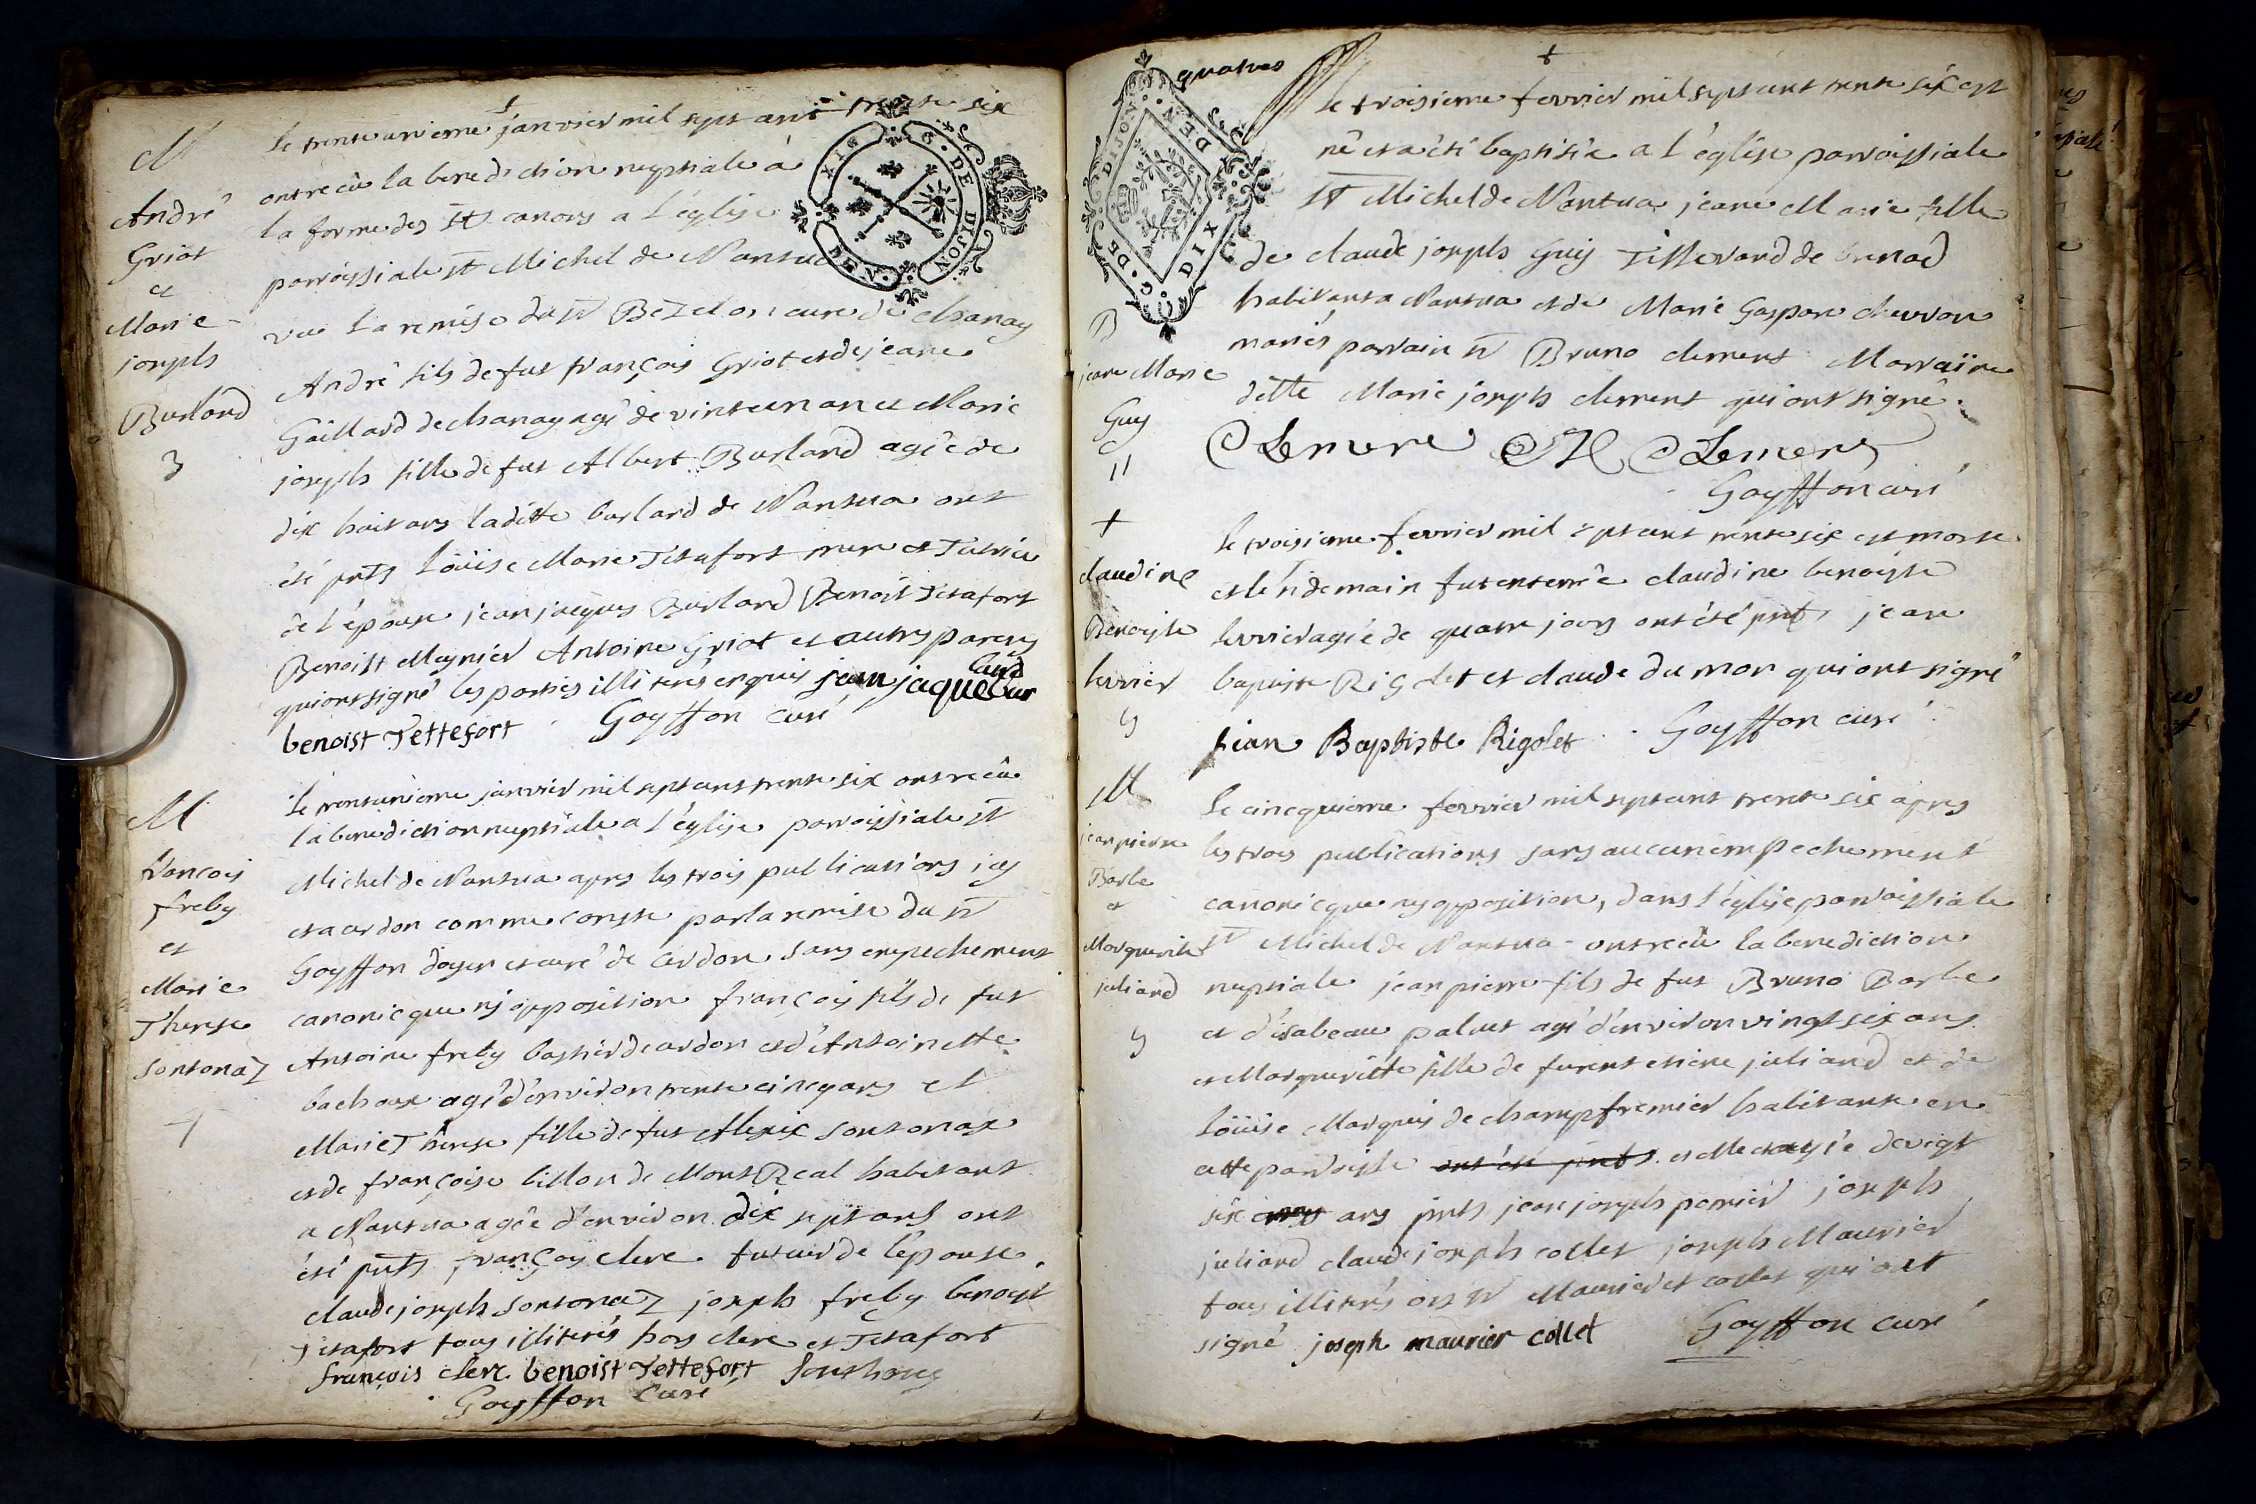 M
André
Griot
et
Marie
joseph
Burlard
3
Le trenteunieme janvier mil sept cent trente six
ont recêu la benediction nuptiale à
la forme des Sts canons a L'église
parroissiale st Michel de Nantua
vue La remise du sr curé de chanay
André fils de fut françois Griot et de jeane
Gaillard de chanay agé de vinteun an et Marie
joseph fille de fut Albert Burlard agée de
dix huit ans laditte burlard de Nantua ont
été pnts Loüise Marie Tetafort mere et Tutrice
de l'épouse jean jacques Burlard Benoit Tetafort
Benoist Meynier Antoine Griot et autres parens
qui ont signé les parties illiterés enquis jean jaque bur
lard
benoist Tettefort Goyffon curé
M
francois
freby
et
Marie
Therese
Sontonaz
4
Le trenteunieme janvier mil sept cent trente six ont recêu
la benediction nuptiale a l'église parroissiale st
Michel de Nantua apres les trois publications icy
et a cerdon comme conste par la remise du sr
Goyffon doyen et curé de Cerdon sans empechement
canonicque ny opposition françois fils de fut
Antoine freby de cerdon et d'Antoinette
bachoux agé d'environ trente cincq ans et
Marie Therese fille de fut Alexix sontonax
et de françoise billon de MontReal habitant
a Nantua agée d'environ dix sept ans ont
été pnts françois clerc tuteur de l'épouse
claude joseph sontonaz joseph freby benoist
Tetafort tous illiterés hors clerc et Tetafort
françois clerc benoist Tettefort Sonthonax
Goyffon Curé
G. DE DIJON
quatres
G. DE DIJON
DIX DEN
B
jeane Marie
Guy
11
Le troisieme fevrier mil sept cent trente six est
né et a été baptisée a L'église parroissiale
st Michel de Nantua jeane Marie fille
de claude joseph Guy Tisserand de brenod
habitant a Nantua et de Marie Gasparde chevron
mariés parrain sr Bruno clement Marraine
dlle Marie joseph clement qui ont signé
Clement M Clement
Goyffon curé
+
claudine
Benoiste
levrier
5
Le troisieme fevrier mil sept cent trente six est morte
et lendemain fut enterrée claudine benoiste
levrier agée de quatre jours ont été pnts jean
baptiste Rigolet et claude du mon qui ont signé
jean Baptiste Rigolet Goyffon curé
M
jean pierre
Barbe
et
Marguerite
juliard
5
Le cincquieme fevrier mil sept cent trente six apres
les trois publications sans aucun empechement
canonicque ny opposition, dans l'église parroissiale
st Michel de Nantua ont recêu la benediction
nuptiale jean pierre fils de fut Bruno Barbe
et d'isabeau paluet agé d'environ vingt six ans
et Marguerite fille de furent etiene juliard et de
Loüise Marquis de champfremier habitante en
cette parroisse ont été pnts et elle agée de vigt
six ans pnts jean joseph perrier joseph
juliard claude joseph collet joseph Maurier
tous illiterés ors sr Maurier et collet qui ont
signé joseph maurier collet Goyffon curé